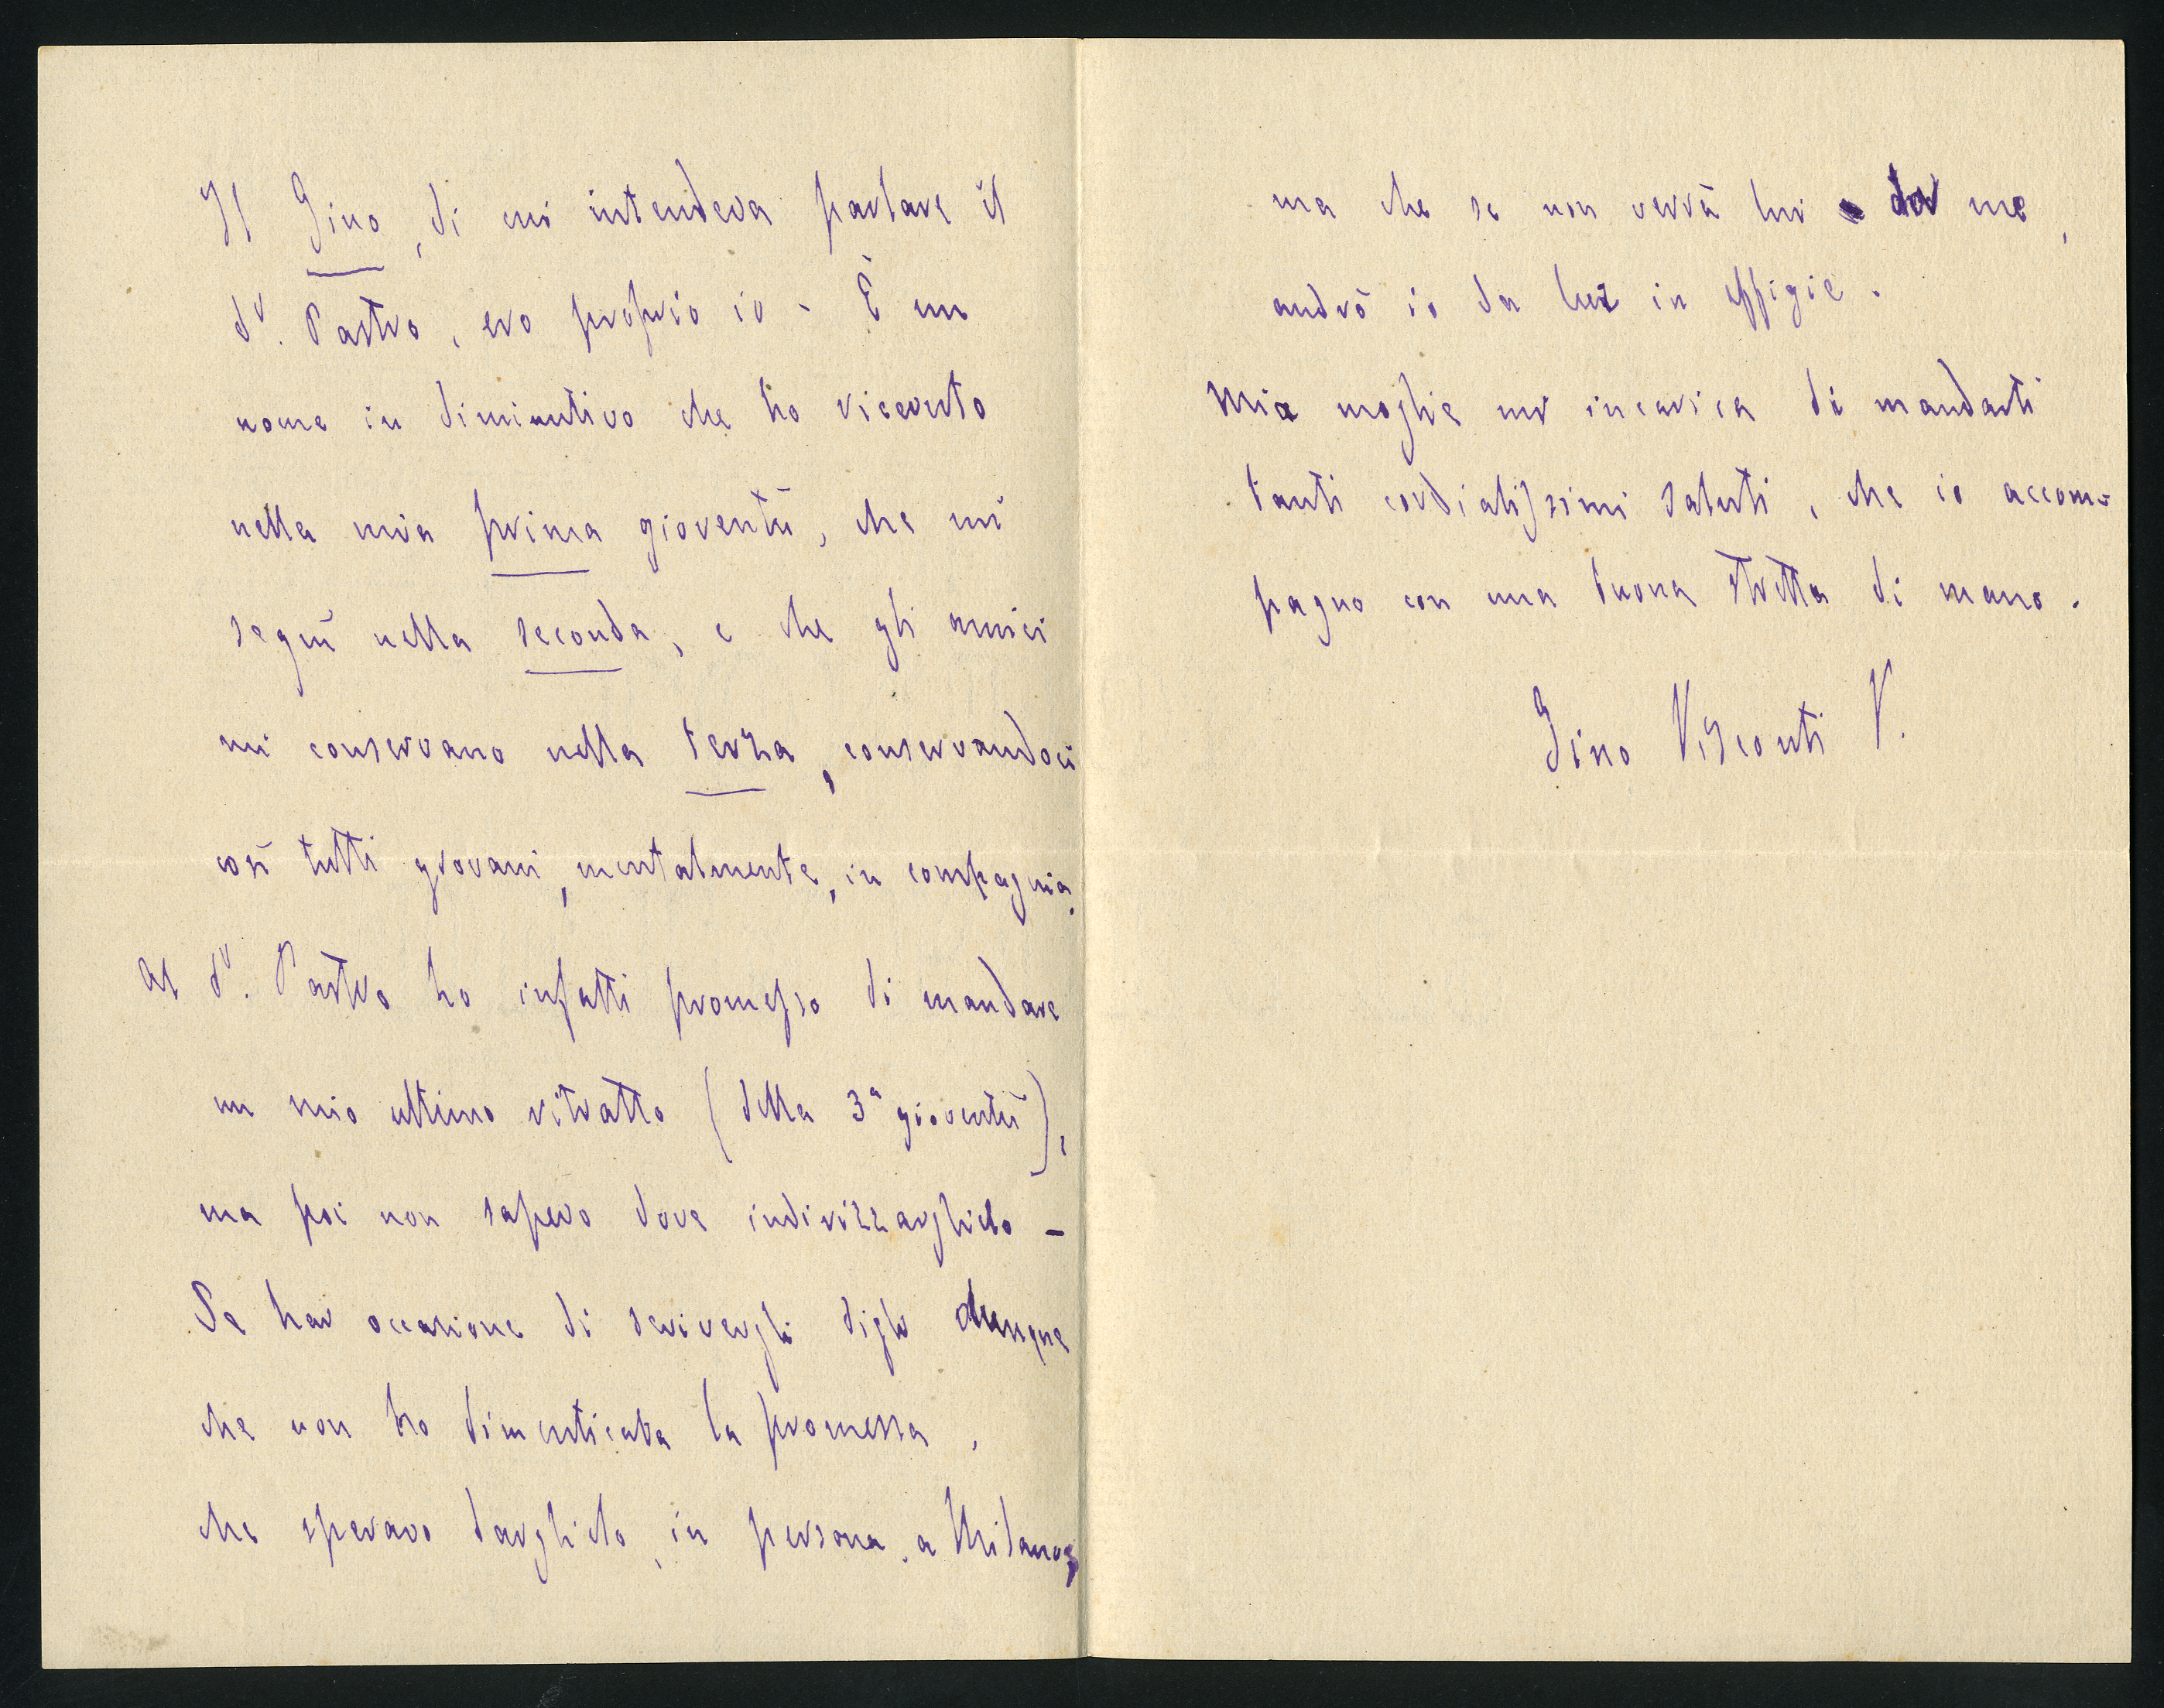 Il Gino, di cui intendeva parlare il
dr. Pastro, ero proprio io - È un
nome in diminutivo che ho ricevuto
nella mia prima gioventù, che mi
seguì nella seconda, e che gli amici
mi conservano nella terza, conservandoci
così tutti giovani, mentalmente, in compagnia.
Al dr. Pastro ho infatti promesso di mandare
un mio ultimo ritratto (della 3ª gioventù),
ma poi non sapevo dove indirizzarglielo -
Se hai occasione di scrivergli digli dunque
che non ho dimenticata la promessa,
che speravo darglielo, in persona, a Milano,
ma che se non verrà lui da me,
andrò io da lui in effigie.
Mia moglie mi incarica di mandarti
tanti cordialissimi saluti, che io accom-
pagno con una buona stretta di mano.
Gino Visconti V.